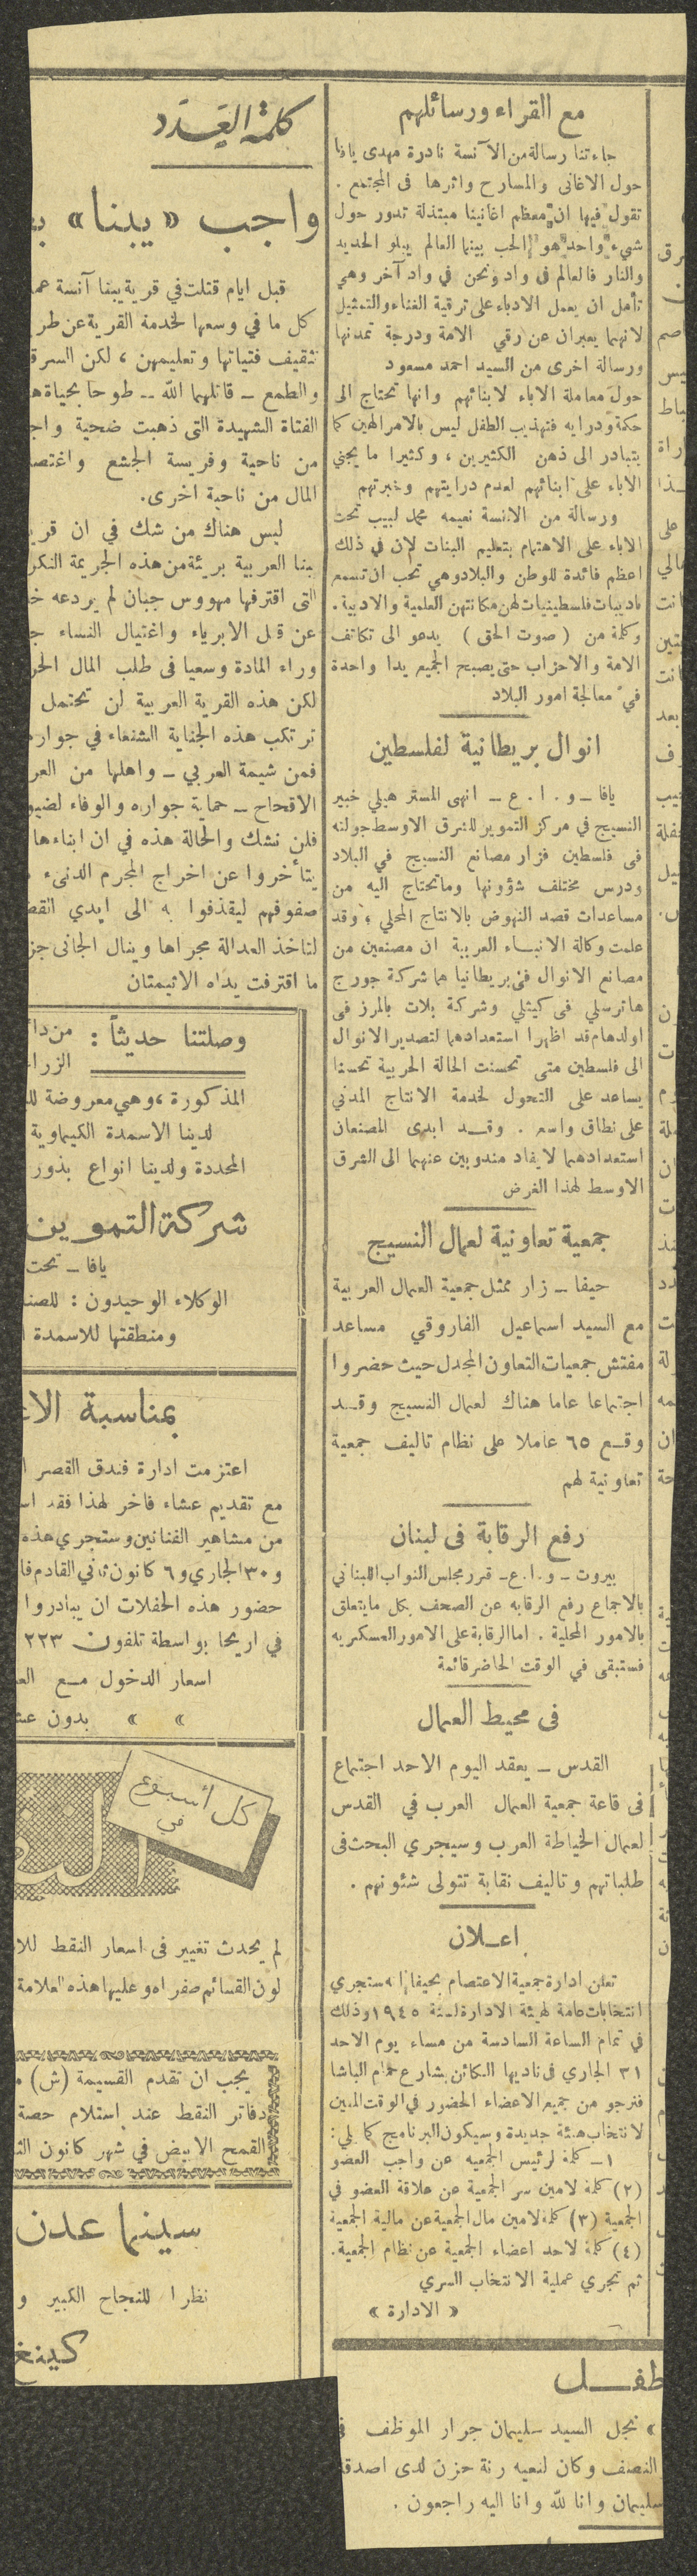 مع القراء ورسائلهم
جاءتنا رسالة من الآنسة نادرة مهدى يافا
حول الاغانى والمسارح واثرها فى المجتمع .
تقول فيها ان معظم اغانينا مبتذلة تدور حول
شيء واحد هو الحب بينما العالم يبلو الحديد
والنار فالعالم فى واد ونحن فى واد آخر وهي
تأمل ان يعمل الادباء على ترقية الغناء والتمثيل
لانهما يعبران عن رقي الامة ودرجة تمدنها
ورسالة اخرى من السيد احمد مسعود
حول معاملة الاباء لابنائهم وانها تحتاج الى
حكمة ودرايه فتهذيب الطفل ليس بالامر الهين كما
يتبادر الى ذهن الكثيرين ، وكثيرا ما يجني
الاباء على ابنائهم لعدم درايتهم وخبرتهم
ورسالة من الانسة نعيمه محمد لبيب تحث
الاباء على الاهتمام بتعليم البنات لان في ذلك
اعظم فائدة للوطن والبلاد وهي تحب ان تسمع
باديبات فلسطينيات لهن مكانتهن العلمية والادبية .
وكلمة من ( صوت الحق ) يدعو الى تكاتف
الامة والاحزاب حتى يصبح الجميع يدا واحدة
في معالجة امور البلاد
انوال بريطانية لفلسطين
يافا – و . ا . ع – انهى المستر هيلي خبير
النسيج في مركز التموير للشرق الاوسط جولته
فى فلسطين فزار مصانع النسيج في البلاد
ودرس مختلف شؤونها وما تحتاج اليه من
مساعدات قصد النهوض بالانتاج المحلي ، وقد
علمت وكالة الانبــاء العربية ان مصنعين من
مصانع الانوال في بريطانيا هما شركة جورج
هاترسلي فى كيثلي وشركة بلات بالمرز فى
اولدهام قد اظهرا استعدادهما لتصدير الانوال
الى فلسطين متى تحسنت الحالة الحربية تحسنا
يساعد على التحول لخدمة الانتاج المدني
على نطاق واسع . وقــد ابدى المصنعان
استعدادهما لايفاد مندوبين عنهما الى الشرق
الاوسط لهذا الغرض
جمعية تعاونية لعمال النسيج
حيفا – زار ممثل جمعية العمال العربية
مع السيد اسماعيل الفاروقي مساعد
مفتش جمعيات التعاون المجدل حيث حضروا
اجتماعا عاما هناك لعمال النسيج وقــد
وقــع ٦٥ عاملا على نظام تاليف جمعية
تعاونية لهم
رفع الرقابة فى لبنان
بيروت – و . ا . ع – قرر مجلس النواب اللبناني
بالاجماع رفع الرقابه عن الصحف بكل ما يتعلق
بالامور المحلية . اما الرقابة على الامور العسكريه
فستبقى في الوقت الحاضر قائمة
فى محيط العمال
القدس – يعقد اليوم الاحد اجتماع
فى قاعة جمعية العمال العرب في القدس
لعمال الخياطة العرب وسيجري البحث فى
طلباتهم وتاليف نقابة تتولى شئونهم .
اعــلان
تعلن ادارة جمعية الاعتصام بحيفا انه ستجري
انتخابات عامة لهيئة الادارة لسنة ١٩٤٥ وذلك
في تمام الساعة السادسة من مساء يوم الاحد
٣١ الجاري فى ناديها الكائن بشارع حمام الباشا
فنرجو من جميع الاعضاء الحضور في الوقت المعين
لانتخاب هيئة جديدة وسيكون البرنامج كما يلي :
١ – كلمة لرئيس الجمعيه عن واجب العضو
(٢) كلمة لامين سر الجمعية عن علاقة العضو في
الجمعية (٣) كلمة لامين مال الجمعية عن مالية الجمعية
(٤) كلمة لاحد اعضاء الجمعية عن نظام الجمعية .
ثم تجري عملية الانتخاب السري
« الادارة »
طفــل
» نجل السيد سليمان جرار الموظف
النصف وكان لنعيه رنة حزن لدى اصدقا
سليمان وانا لله وانا اليه راجعون .
كلمة العدد
واجب «يبنا»
قبل ايام قتلت في قرية يبنا آنسة
كل ما في وسعها لخدمة القرية عن طر
تثقيف فتياتها وتعليمهن ، لكن السرقة
والطمع – قاتلهما الله – طوحا بحياة
الفتاة الشهيدة التى ذهبت ضحية
من ناحية وفريسة الجشع واغتصا
المال من ناحية اخرى .
ليس هناك من شك في ان قر
يبنا العربية بريئة من هذه الجريمة النكر
التى اقترفها مهووس جبان لم يردعه
عن قتل الابرياء واغتيال النساء
وراء المادة وسعيا فى طلب المال الحر
لكن هذه القرية العربية لن تحتمل
ترتكب هذه الجناية الشنعاء في جوار
فمن شيمة العربي – واهلها من العر
الاقحاح – حماية جواره والوفاء لضيو
فلن نشك والحالة هذه في ان ابناءها
يتأخروا عن اخراج المجرم الدنىء
صفوفهم ليقذفوا به الى ايدي القض
لتاخذ العدالة مجراها وينال الجانى جز
ما اقترفت يداه الاثيمتان
وصلتنا حديثاً : من
الزرا
المذكورة ، وهي معروضة
لدينا الاسمدة الكيماوية
المحددة ولدينا انواع بذور
شركة التموين
يافا – تحت
الوكلاء الوحيدون :
ومنطقتها للاسمدة
بمناسبة
اعتزمت ادارة فندق القصر
مع تقديم عشاء فاخر لهذا فقد
من مشاهير الفنانين وستجري هذه
و٣٠ الجاري و٦ كانون ثاني القادم
حضور هذه الحفلات ان يبادروا
في اريحا بواسطة تلفون ٢٢٣
اسعار الدخول مــع
» » بدون
كل أسبوع
في
لم يحدث تغيير فى اسعار النقط
لون القسائم صفراء وعليها هذه العلامة
يجب ان تقدم القسيمة (ش)
دفاتر النقط عند استلام حصة
القمح الابيض في شهر كانون
سينما عدن
نظرا للنجاح الكبير و
كينغ